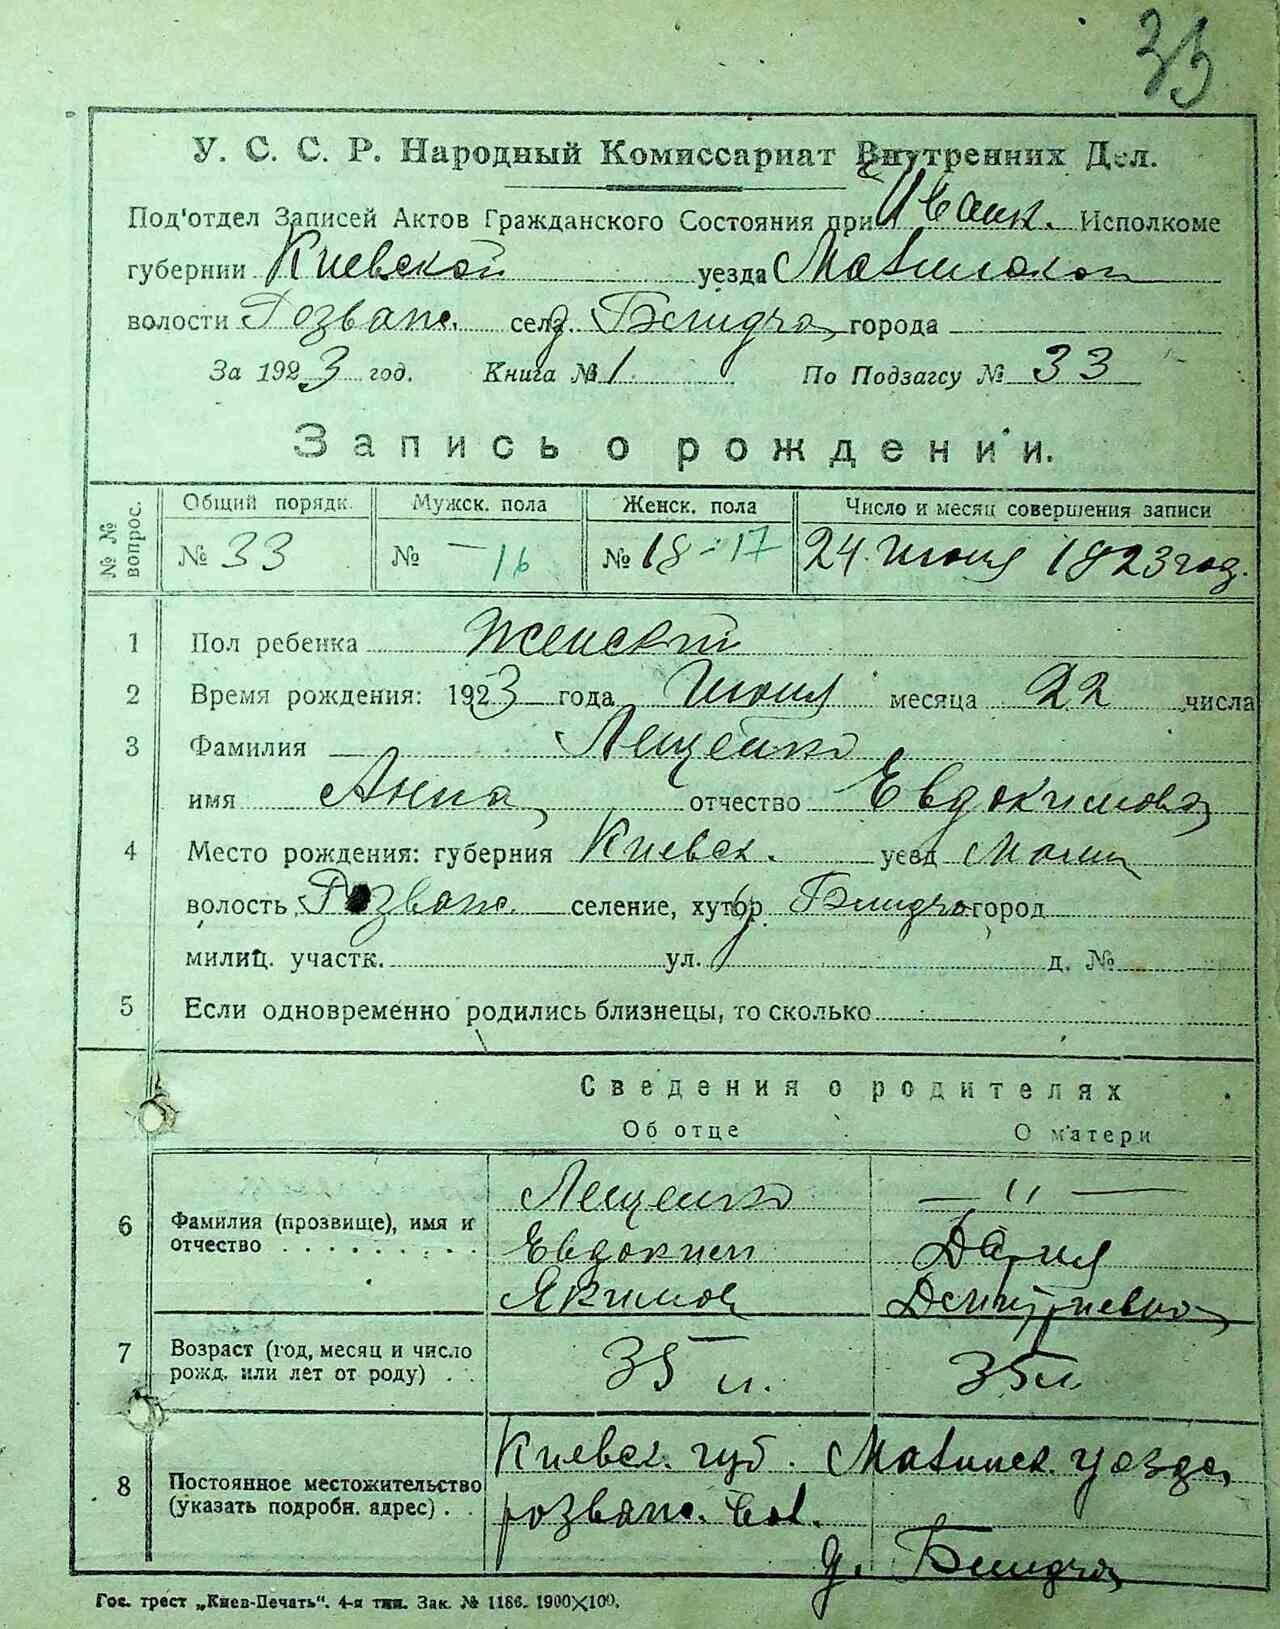 33
У. С. С. Р. Народный Комиссариат Внутренних Дел.
Под'отдел Записей Актов Гражданского Состояния при Иванк. Исполкоме
губернии Киевской уезда
волости Розваж. села д. города
За 1923 год. Книга № 1 По Подзагсу № 33
Запись о рождении.
№№ вопрос. Общий порядк. Мужск. пола Женск. пола Число и месяц совершения записи
№ 33 № — 16 № 18 - 17 24 июня 1923 год.
1 Пол ребенка женский
2 Время рождения: 1923 года июня месяца 22 числа
3 Фамилия Лещенко
имя Анна отчество Евдокимова
4 Место рождения: губерния Киевск. уезд
волость Розваж. селение, хутор город
милиц. участк. ул. д. №
5 Если одновременно родились близнецы, то сколько
Сведения о родителях
Об отце О матери
6 Фамилия (прозвище), имя и отчество . . . . . . . . . Лещенко — " —
Евдоким Дария
Якимов Демитриевна
7 Возраст (год, месяц и число рожд. или лет от роду) . . 35 л. 35 л.
8 Постоянное местожительство (указать подробн. адрес) . . Киевск. губ. уезда
розваж. вол.
д.
Гос. трест „Киев-Печать“. 4-я тип. Зак. № 1186. 1900×100.